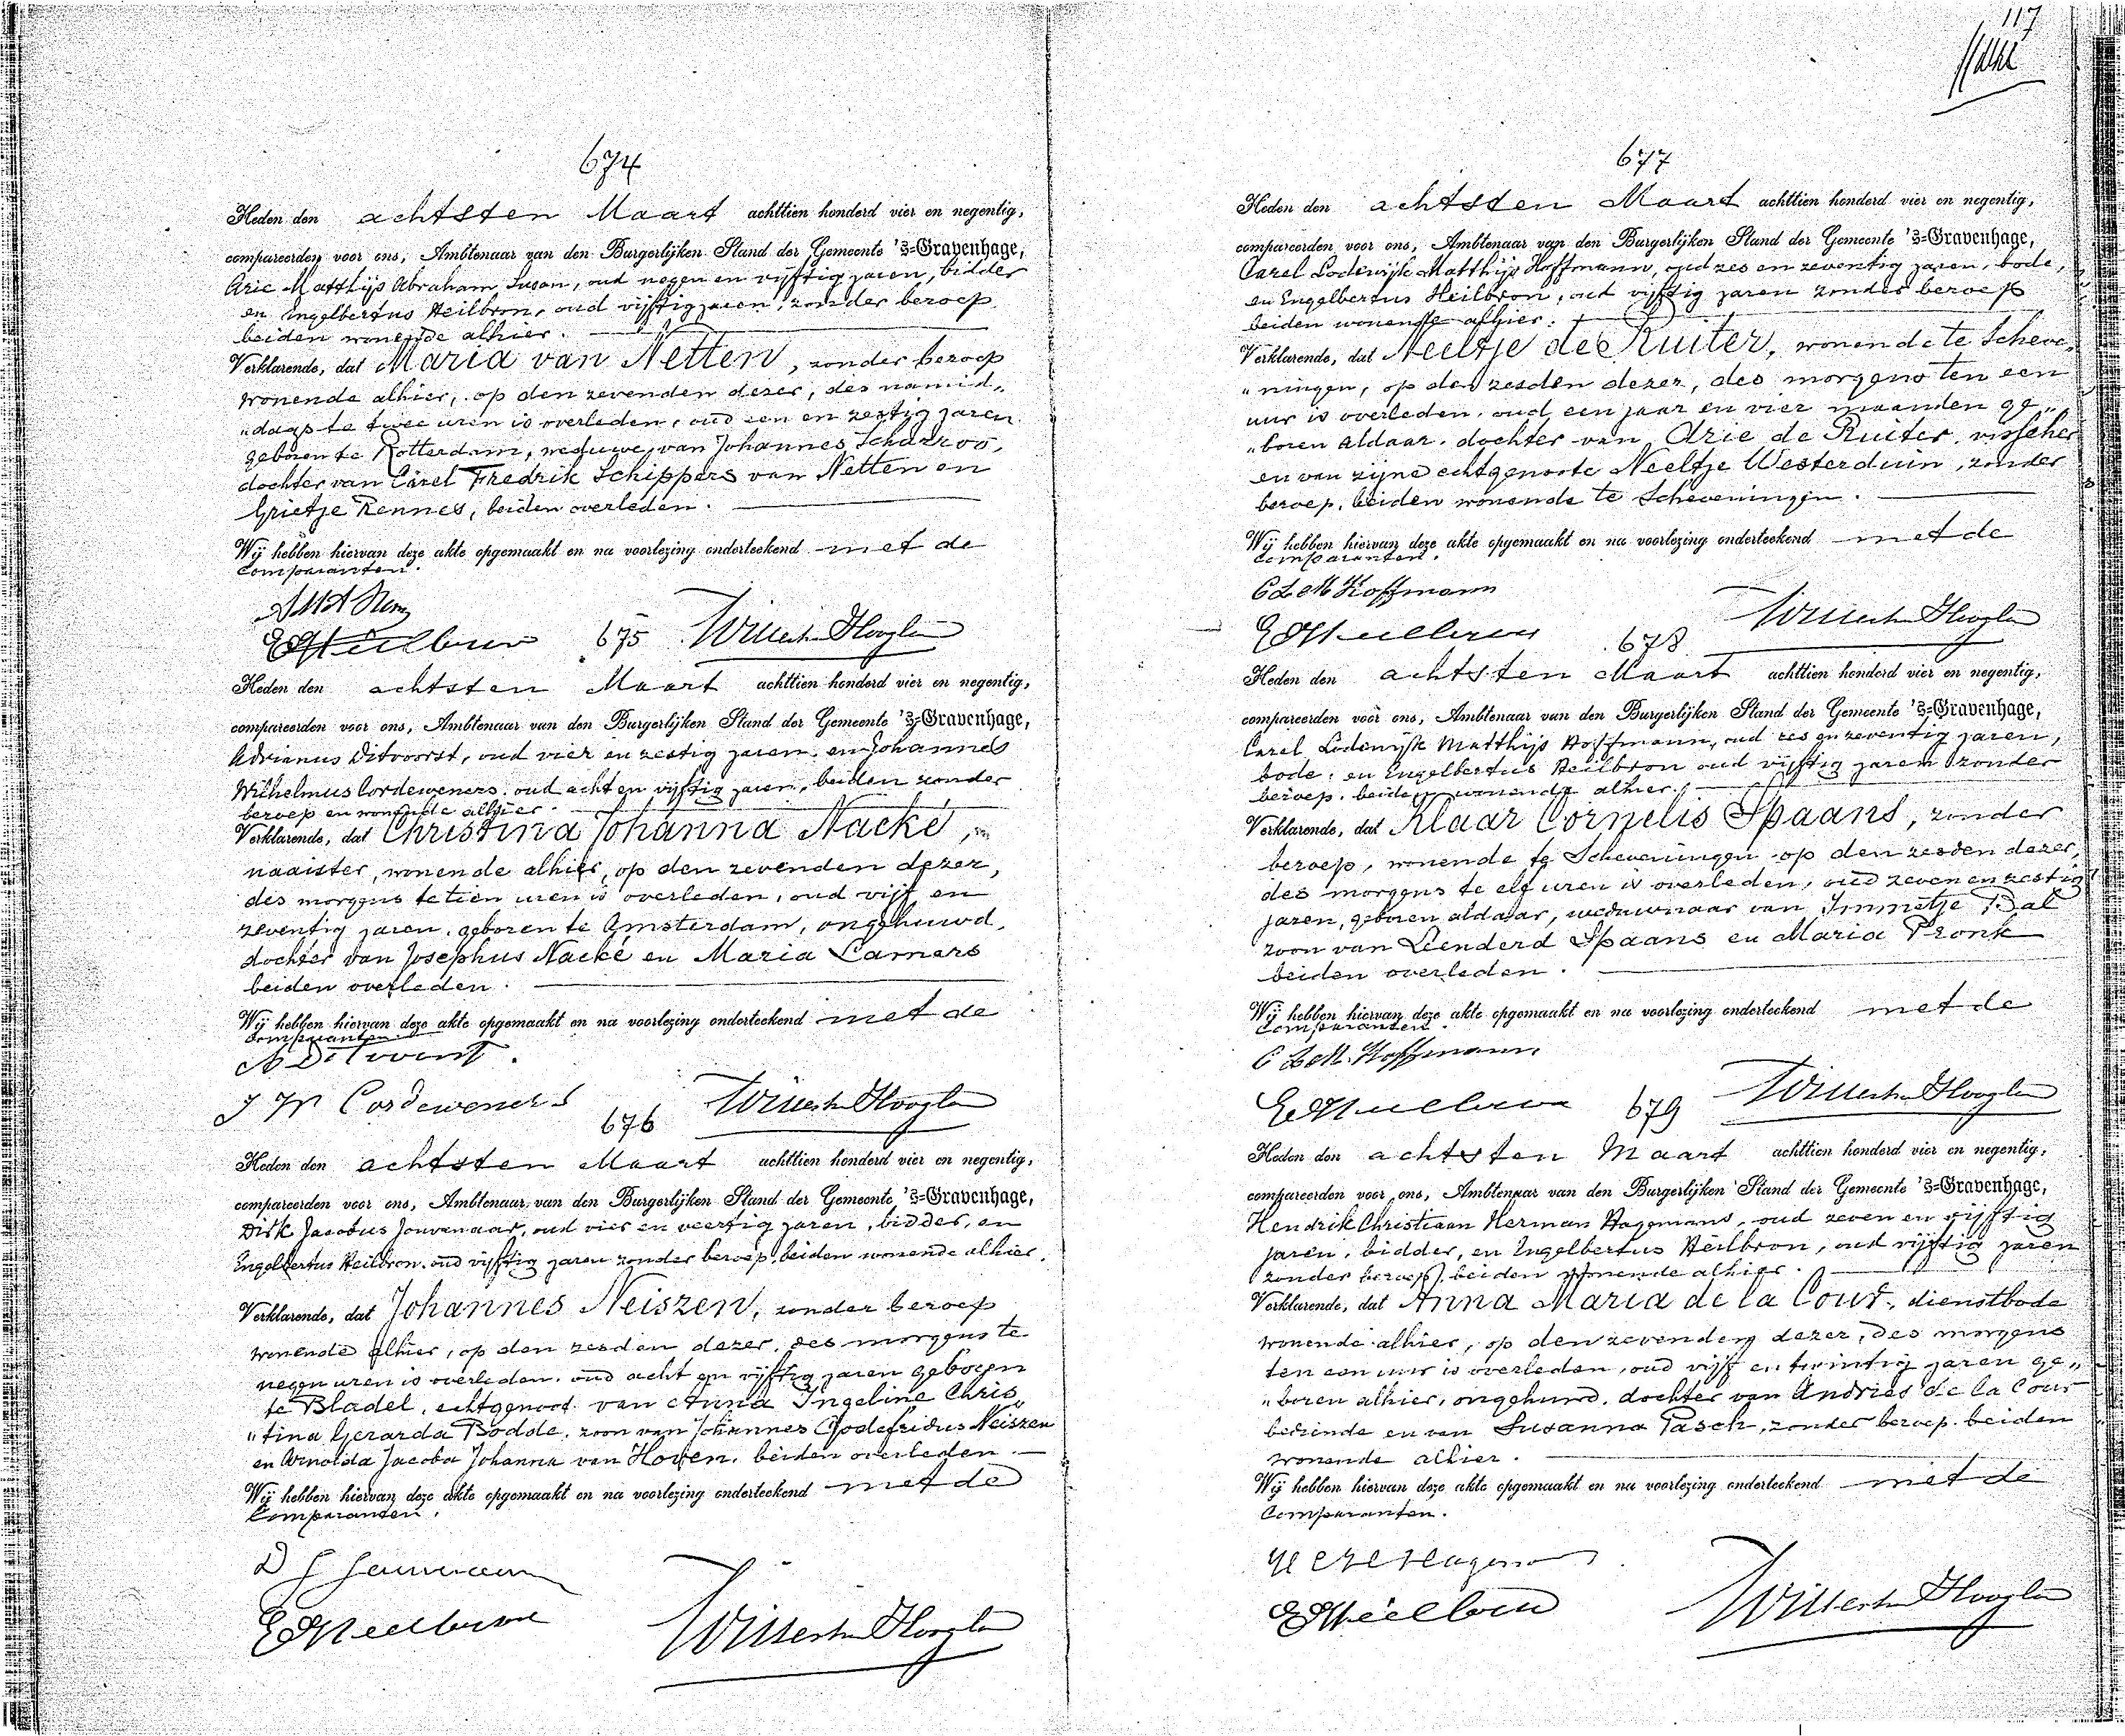 117
674
Heden den achtsten Maart achttien honderd vier en negentig,
compareerden voor ons, Ambtenaar van den Burgerlijken Stand der Gemeente 's-Gravenhage,
Arie Matthijs Abraham Susan, oud negen en vijftig jaren, bidder
en Engelbertus Heilbron, oud vijftig jaren, zonder beroep
beiden wonende alhier.
Verklarende, dat Maria van Netten, zonder beroep
wonende alhier, op den zevenden dezer, des namid„
„dags te twee uren is overleden, oud een en zestig jaren
geboren te Rotterdam, weduwe van Johannes Scharroo,
dochter van Carel Fredrik Schippers van Netten en
Grietje Rennes, beiden overleden.
Wij hebben hiervan deze akte opgemaakt en na voorlezing onderteekend met de
Comparanten.
E Heilbron
675
Heden den achtsten Maart achttien honderd vier en negentig,
compareerden voor ons, Ambtenaar van den Burgerlijken Stand der Gemeente 's-Gravenhage,
Adrianus Ditvoorst, oud vier en zestig jaren, en Johannes
Wilhelmus Cordeweners, oud acht en vijftig jaren, beiden zonder
beroep en wonende alhier.
Verklarende, dat Christina Johanna Nacké,
naaister, wonende alhier, op den zevenden dezer,
des morgens te tien uren is overleden, oud vijf en
zeventig jaren, geboren te Amsterdam, ongehuwd,
dochter van Josephus Nacké en Maria Lamers
beiden overleden.
Wij hebben hiervan deze akte opgemaakt en na voorlezing onderteekend met de
Comparanten.
A Ditvoorst.
J W Cordeweners
676
Heden den achtsten Maart achttien honderd vier en negentig,
compareerden voor ons, Ambtenaar van den Burgerlijken Stand der Gemeente 's-Gravenhage,
Dirk Jacobus Jouvenaar, oud vier en veertig jaren, bidder, en
Engelbertus Heilbron, oud vijftig jaren zonder beroep, beiden wonende alhier.
Verklarende, dat Johannes Neiszen, zonder beroep
wonende alhier, op den zesden dezer, des morgens te
negen uren is overleden, oud acht en vijftig jaren geboren
te Bladel, echtgenoot van Anna Ingeline Chris„
„tina Gerarda Bodde, zoon van Johannes Godefridus Neiszen
en Arnolda Jacoba Johanna van Hoven, beiden overleden.
Wij hebben hiervan deze akte opgemaakt en na voorlezing onderteekend met de
Comparanten.
E Heilbron
677
Heden den achtsten Maart achttien honderd vier en negentig,
compareerden voor ons, Ambtenaar van den Burgerlijken Stand der Gemeente 's-Gravenhage,
Carel Lodewijk Matthijs Hoffmann, oud zes en zeventig jaren, bode,
en Engelbertus Heilbron, oud vijftig jaren zonder beroep
beiden wonende alhier.
Verklarende, dat Neeltje de Ruiter, wonende te Scheve„
„ningen, op den zesden dezer, des morgens ten een
uur is overleden, oud een jaar en vier maanden ge„
„boren aldaar, dochter van Arie de Ruiter, visscher
en van zijne echtgenoote Neeltje Westerduin, zonder
beroep, beiden wonende te Scheveningen.
Wij hebben hiervan deze akte opgemaakt en na voorlezing onderteekend met de
Comparanten.
C L M Hoffmann
E Heilbron
678
Heden den achtsten Maart achttien honderd vier en negentig,
compareerden voor ons, Ambtenaar van den Burgerlijken Stand der Gemeente 's-Gravenhage,
Carel Lodewijk Matthijs Hoffmann, oud zes en zeventig jaren,
bode, en Engelbertus Heilbron oud vijftig jaren zonder
beroep, beiden wonende alhier.
Verklarende, dat Klaar Cornelis Spaans, zonder
beroep, wonende te Scheveningen op den zesden dezer,
des morgens te elf uren is overleden, oud zeven en zestig
jaren, geboren aldaar, weduwnaar van Immetje Bal
zoon van Leenderd Spaans en Maria Pronk
beiden overleden.
Wij hebben hiervan deze akte opgemaakt en na voorlezing onderteekend met de
Comparanten.
C L M. Hoffmann
E Heilbron
679
Heden den achtsten Maart achttien honderd vier en negentig,
compareerden voor ons, Ambtenaar van den Burgerlijken Stand der Gemeente 's-Gravenhage,
Hendrik Christiaan Herman Hagemans, oud zeven en vijftig
jaren, bidder, en Engelbertus Heilbron, oud vijftig jaren
zonder beroep, beiden wonende alhier.
Verklarende, dat Anna Maria de la Cour, dienstbode
wonende alhier, op den zevenden dezer, des morgens
ten een uur is overleden, oud vijf en twintig jaren ge„
„boren alhier, ongehuwd, dochter van Andries de la Cour
bediende en van Susanna Pasch, zonder beroep, beiden
wonende alhier.
Wij hebben hiervan deze akte opgemaakt en na voorlezing onderteekend met de
Comparanten.
E Heilbron